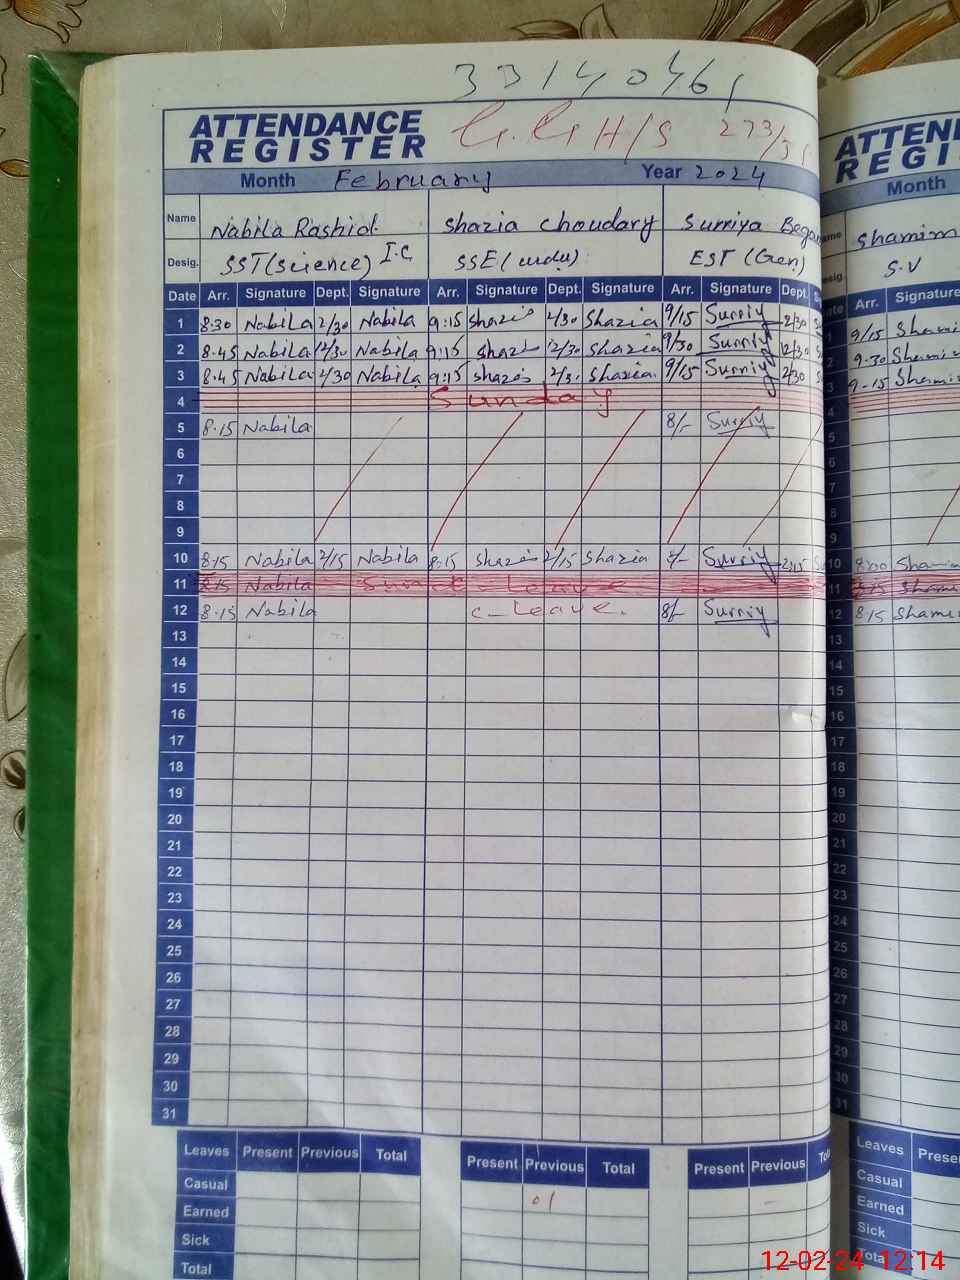 33140461
ATTENDANCE G.G H/S 273/3
REGISTER
Month February Year 2024
Name Nabila Rashid. Shazia Choudary Surriya Began
Desig. SST(science) I.C SSE(urdu) EST (Gen)
Date Arr. Signature Dept. Signature Arr. Signature Dept. Signature Arr. Signature Dept.
1 8:30 Nabila 2/30 Nabila 9:15 Shazia 2/30 Shazia 9/15 Surriy 2/30
2 8.45 Nabila 12/30 Nabila 9:15 Shazia 12/30 Shazia 9/30 Surriy 12/30
3 8.45 Nabila 2/30 Nabila 9:15 Shazia 2/3 Shazia. 9/15 Surriy 2/30
4 Sunday
5 8.15 Nabila 8/- Surriy
6
7
8
9
10 8:15 Nabila 2/15 Nabila 8:15 Shazia 2/15 Shazia 8/- Surriy 2:15
11 8:15 Nabila Leave
12 8.15 Nabila c_Leave. 8/- Surriy
13
14
15
16
17
18
19
20
21
22
23
24
25
26
27
28
29
30
31
Leaves Present Previous Total Present Previous Total Present Previous
Casual
Earned 01 -
Sick
Total
ATTEN
REGI
Month
Shamim
S.V
Arr. Signature
1 9/15 Shami
2 9.30 Shamim
3 9-15 Shamim
4
5
6
7
8
9
10 8:00 Shami
11 8:15 Shami
12 8/15 Shami
13
14
15
16
17
18
19
20
21
22
23
24
25
26
27
28
29
30
31
Leaves Prese
Casual
Earned
Sick
Total
12-02-24 12:14